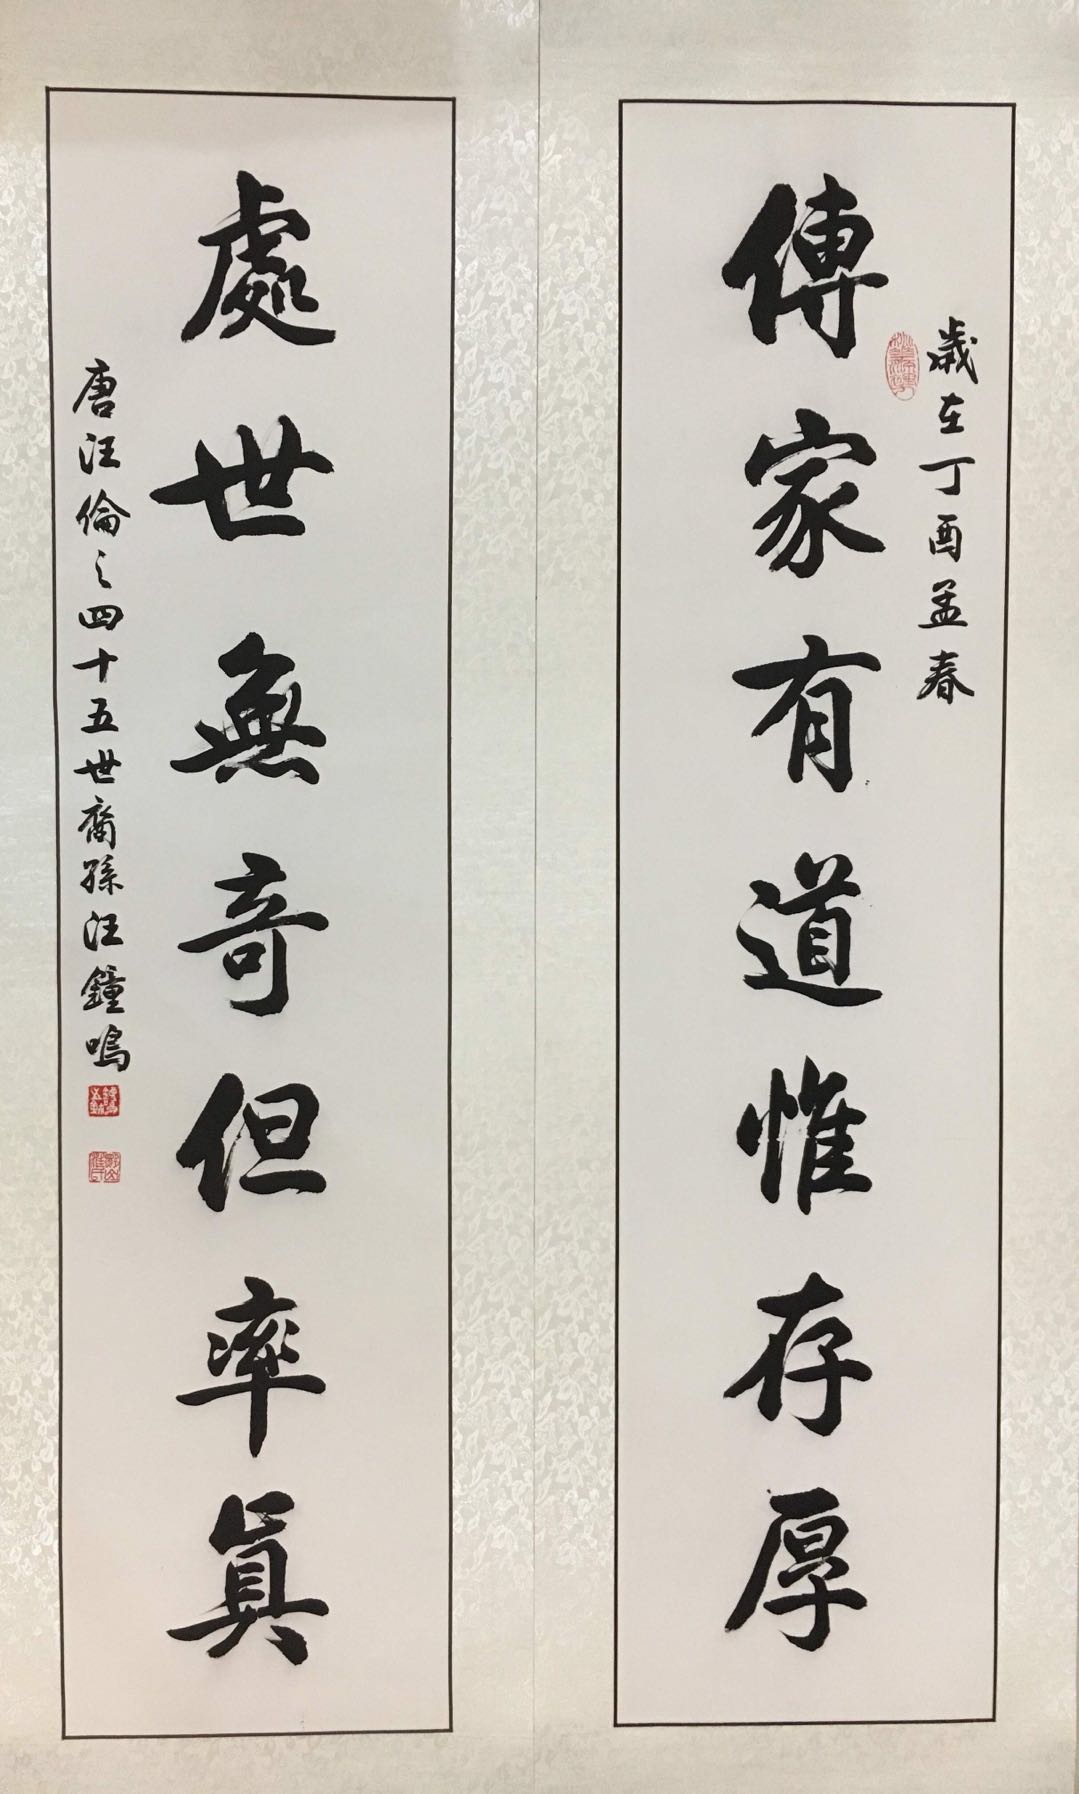 歲在丁酉孟春
傳家有道惟存厚
處世無奇但率真
唐汪倫之四十五世裔孫汪鐘鳴